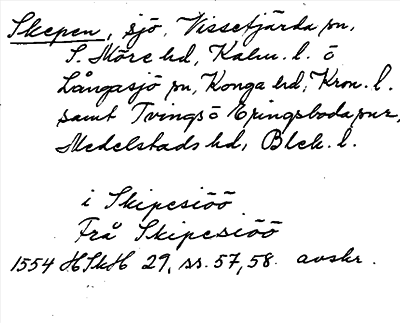 Skepen, sjö, Vissefjärda sn,
S. Möre hd, Kalm. l. o
Långasjö sn, Konga hd, Kron. l.
samt Tvings o Eringsboda snr,
Medelstads hd, Blek. l.
i Skipesiöö
Frå Skipesiöö
1554 HSkH 29, ss. 57, 58. avskr.